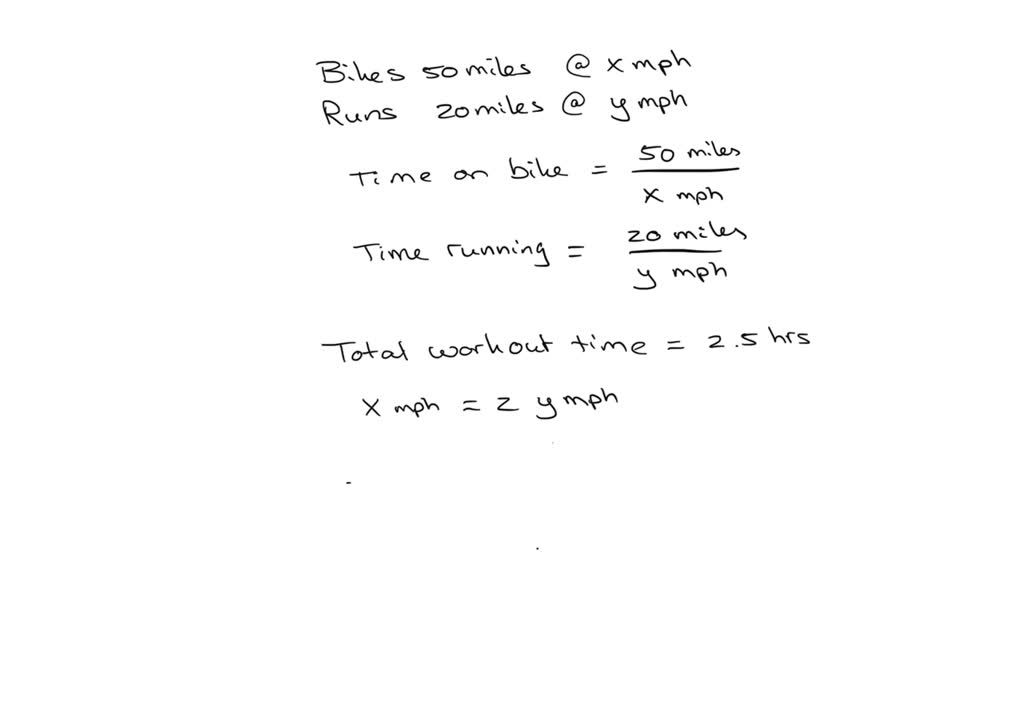 Bikes 50 miles @ x mph
Runs 20 miles @ y mph
Time on bike = 50 miles / x mph
Time running = 20 miles / y mph
Total workout time = 2.5 hrs
x mph = 2 y mph